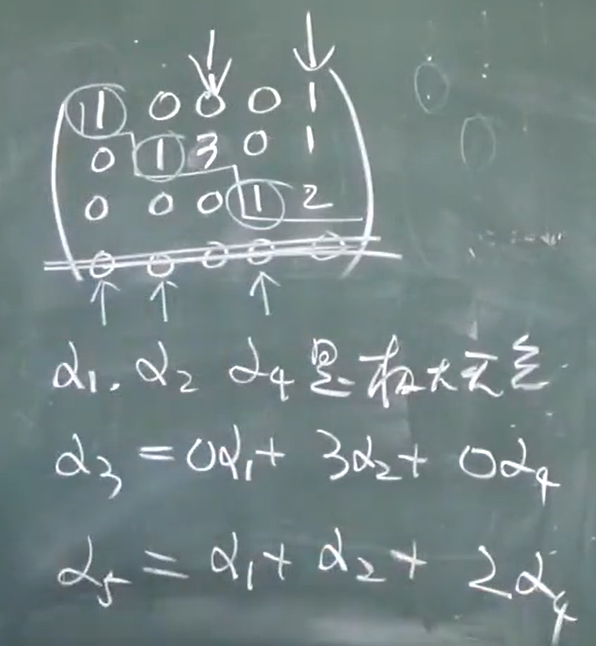 1 0 0 0 1
0 1 3 0 1
0 0 0 1 2
0 0 0 0 0
α1, α2 α4 是极大无关
α3 = 0α1 + 3α2 + 0α4
α5 = α1 + α2 + 2α4